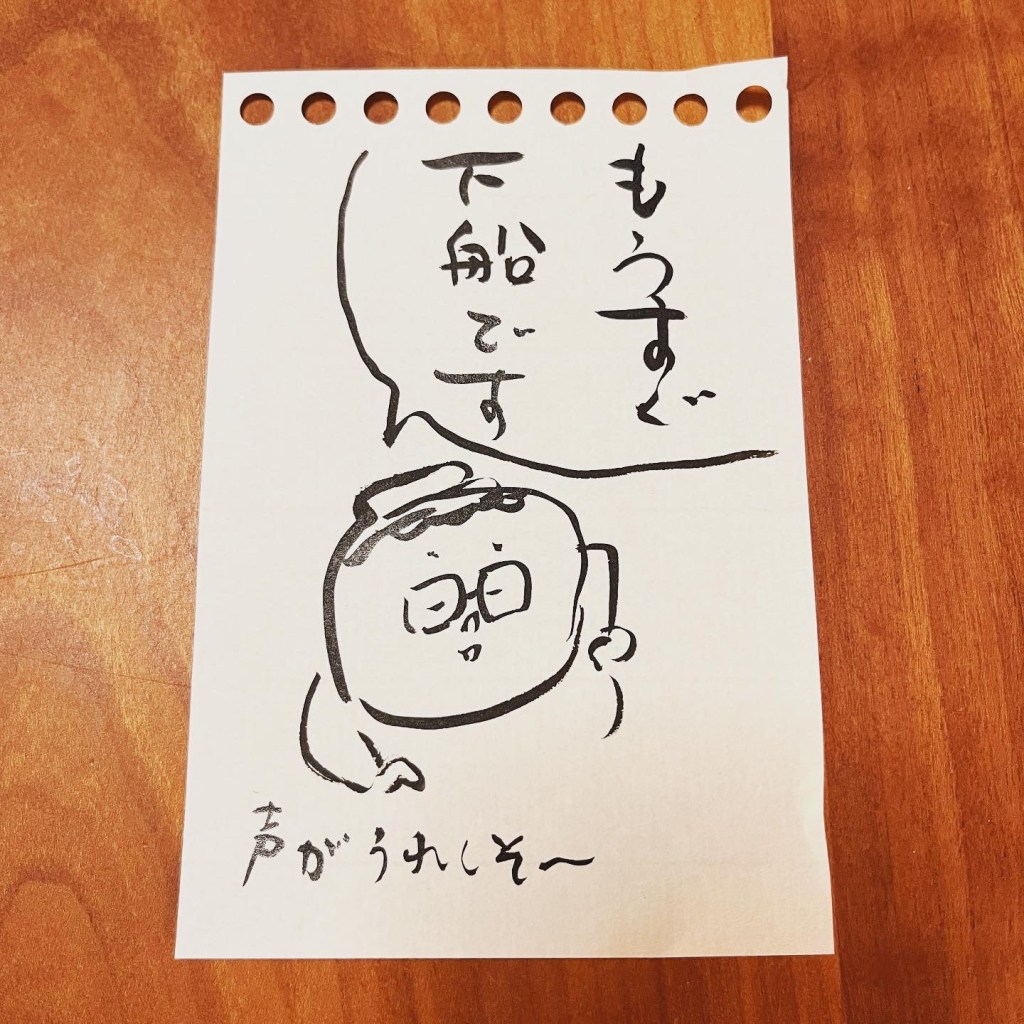 もうすぐ
下船です
声がうれしそ〜